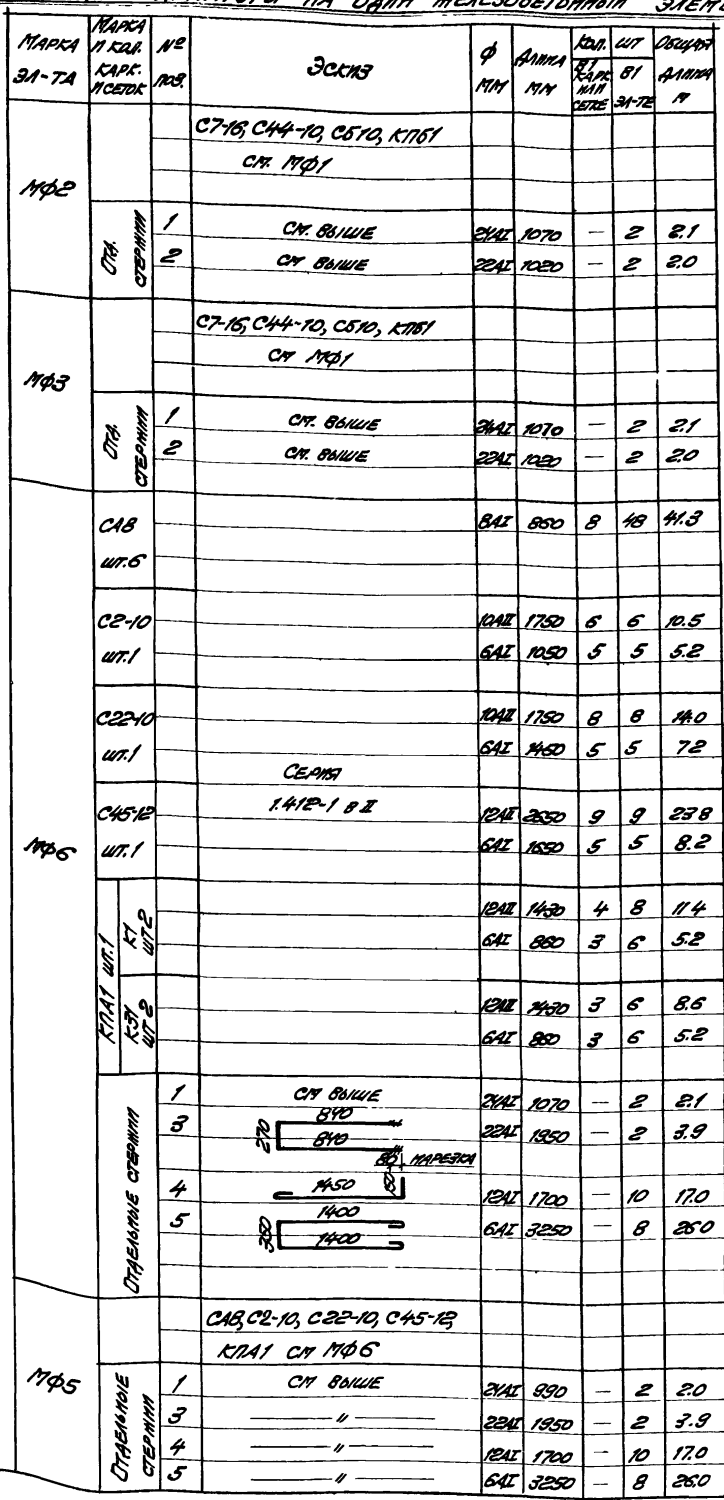 НА ОДИН ЖЕЛЕЗОБЕТОННЫЙ
МАРКА ЭЛ-ТА | МАРКА И КОЛ. КАРК. И СЕТОК | № ПОЗ. | ЭСКИЗ | ф ММ | ДЛИНА ММ | КОЛ. ШТ В 1 КАРК ИЛИ СЕТКЕ | В 1 ЭЛ-ТЕ | ОБЩАЯ ДЛИНА М
МФ2
С7-16, С44-10, СБ10, КПБ1
СМ. МФ1
ОТД. СТЕРЖНИ
1 СМ. ВЫШЕ 24АI 1070 — 2 2.1
2 СМ ВЫШЕ 22АI 1020 — 2 2.0
МФ3
С7-16, С44-10, СБ10, КПБ1
СМ МФ1
ОТД. СТЕРЖНИ
1 СМ. ВЫШЕ 24АI 1070 — 2 2.1
2 СМ. ВЫШЕ 22АI 1020 — 2 2.0
МФ6
СА8 8АI 860 8 48 41.3
ШТ.6
С2-10 10АII 1750 6 6 10.5
ШТ.1 6АI 1050 5 5 5.2
С22-10 10АII 1750 8 8 14.0
ШТ.1 6АI 1450 5 5 7.2
СЕРИЯ
1.412-1 В II
С45-12 12АII 2650 9 9 23.8
ШТ.1 6АI 1650 5 5 8.2
КПА1 ШТ.1
К1 ШТ-2
12АII 1430 4 8 11.4
6АI 860 3 6 5.2
К31 ШТ 2
12АII 1430 3 6 8.6
6АI 860 3 6 5.2
ОТДЕЛЬНЫЕ СТЕРЖНИ
1 СМ ВЫШЕ 24АI 1070 — 2 2.1
3 840 22АI 1950 — 2 3.9
270 840
80 НАРЕЗКА
4 1450 150 12АI 1700 — 10 17.0
5 1400 6АI 3250 — 8 26.0
350 1400
МФ5
СА8, С2-10, С22-10, С45-12,
КПА1 СМ МФ6
ОТДЕЛЬНЫЕ СТЕРЖНИ
1 СМ ВЫШЕ 24АI 990 — 2 2.0
3 — " — 22АI 1950 — 2 3.9
4 — " — 12АI 1700 — 10 17.0
5 — " — 6АI 3250 — 8 26.0